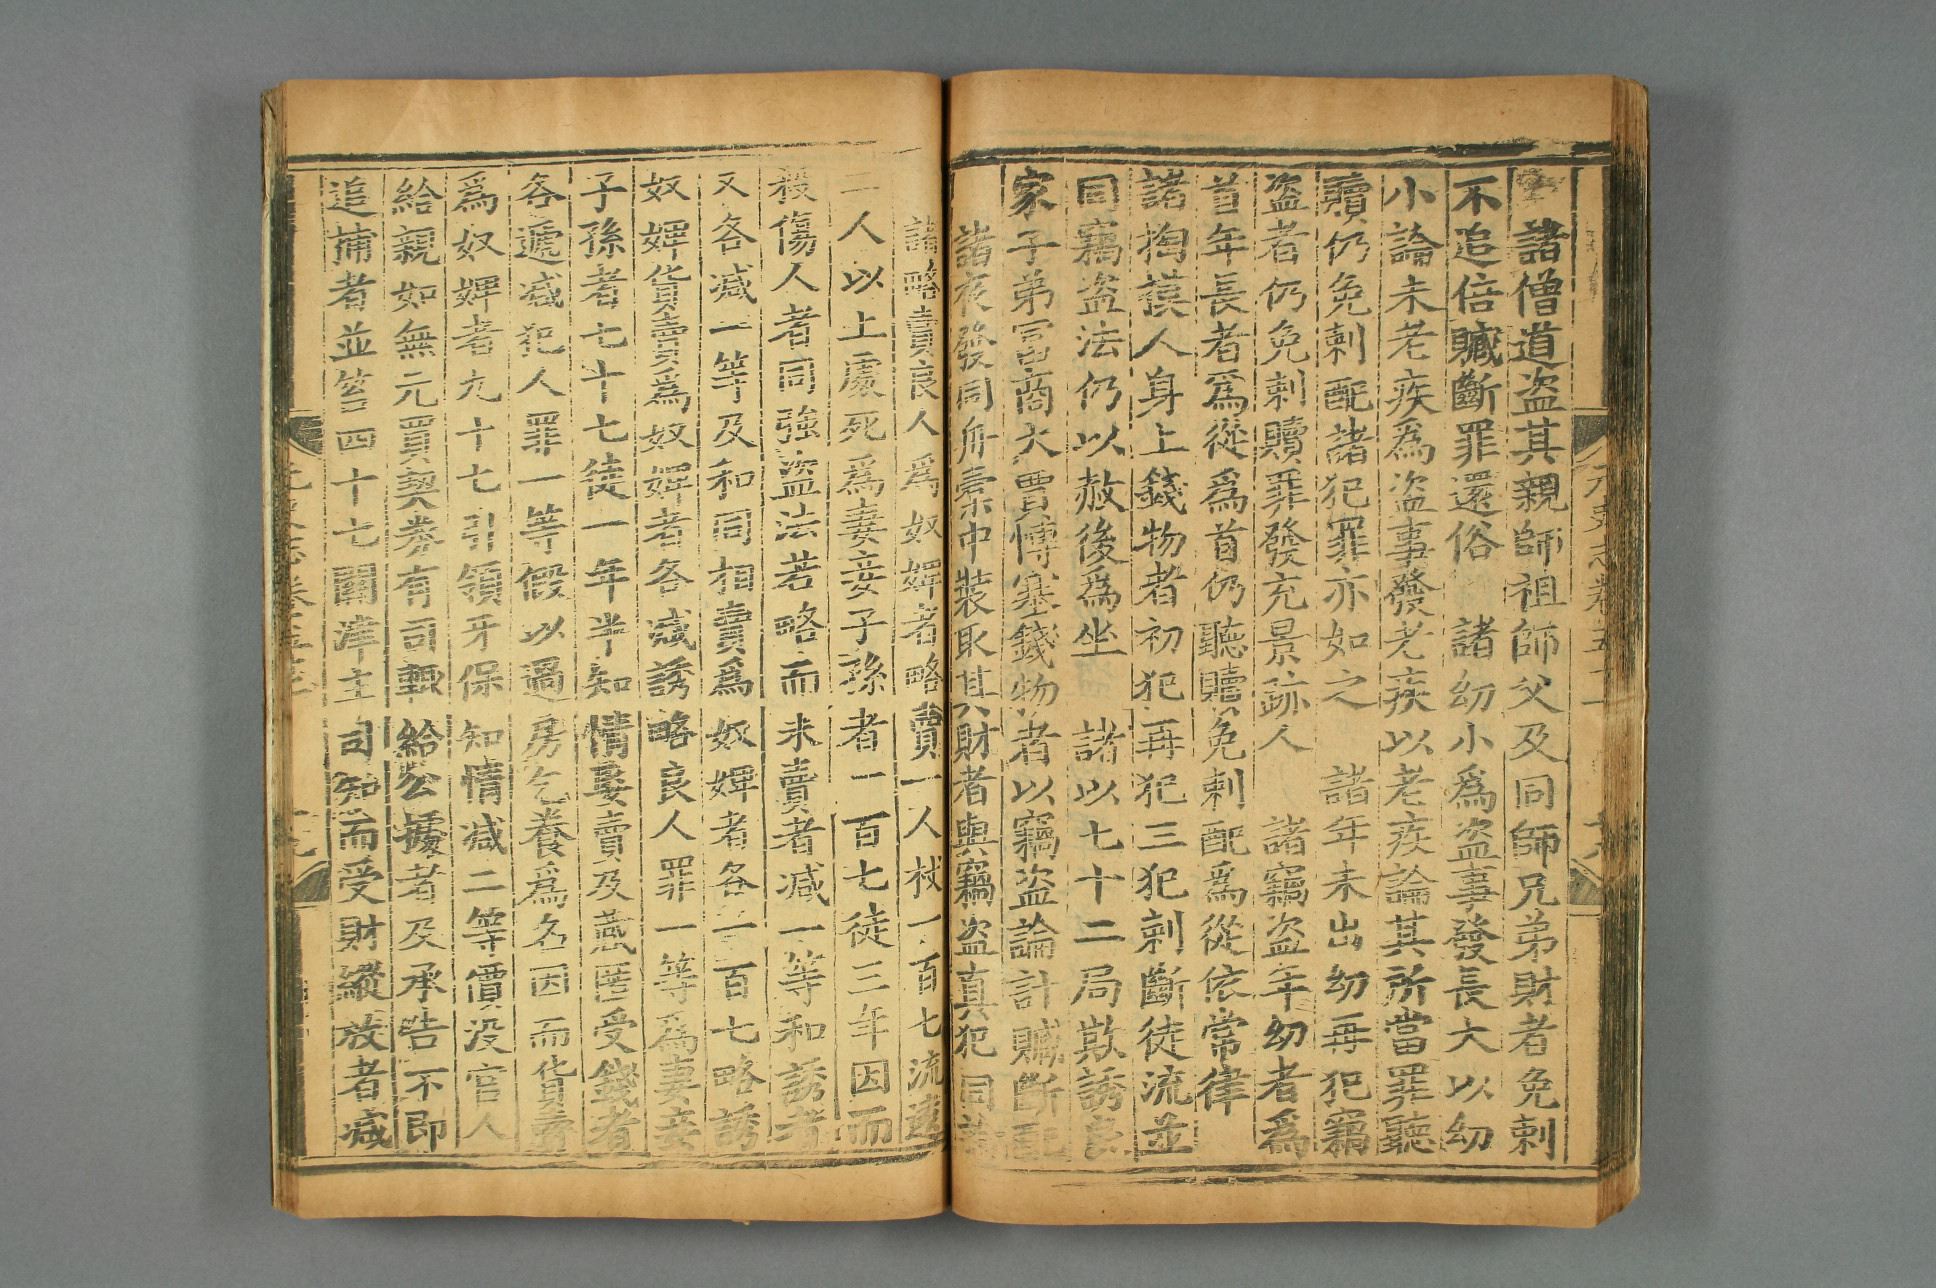 諸僧道盜其親師祖師父及同師兄弟財者免刺
不追倍贓斷罪還俗　諸幼小爲盜事發長大以幼
小論未老疾爲盜事發老疾以老疾論其所當罪聽
贖仍免刺配諸犯罪亦如之　諸年未出幼再犯竊
盜者仍免刺贖罪發充景跡人　諸竊盜年幼者爲
首年長者爲從爲首仍聽贖免刺配爲從依常律
諸掏摸人身上錢物者初犯再犯三犯刺斷徒流並
同竊盜法仍以赦後爲坐　諸以七十二局欺誘良
家子弟富商大賈博塞錢物者以竊盜論計贓斷配
諸夜發同舟橐中裝取其財者與竊盜真犯同論
諸略賣良人爲奴婢者略賣一人杖一百七流遠
二人以上處死爲妻妾子孫者一百七徒三年因而
殺傷人者同強盜法若略而未賣者減一等和誘者
又各減一等及和同相賣爲奴婢者各一百七略誘
奴婢貨賣爲奴婢者各減誘略良人罪一等爲妻妾
子孫者七十七徒一年半知情娶賣及藏匿受錢者
各遞減犯人罪一等假以過房乞養爲名因而貨賣
爲奴婢者九十七引領牙保知情減二等價沒官人
給親如無元買契券有司輒給公據者及承告不即
追捕者並笞四十七關津主司知而受財縱放者減